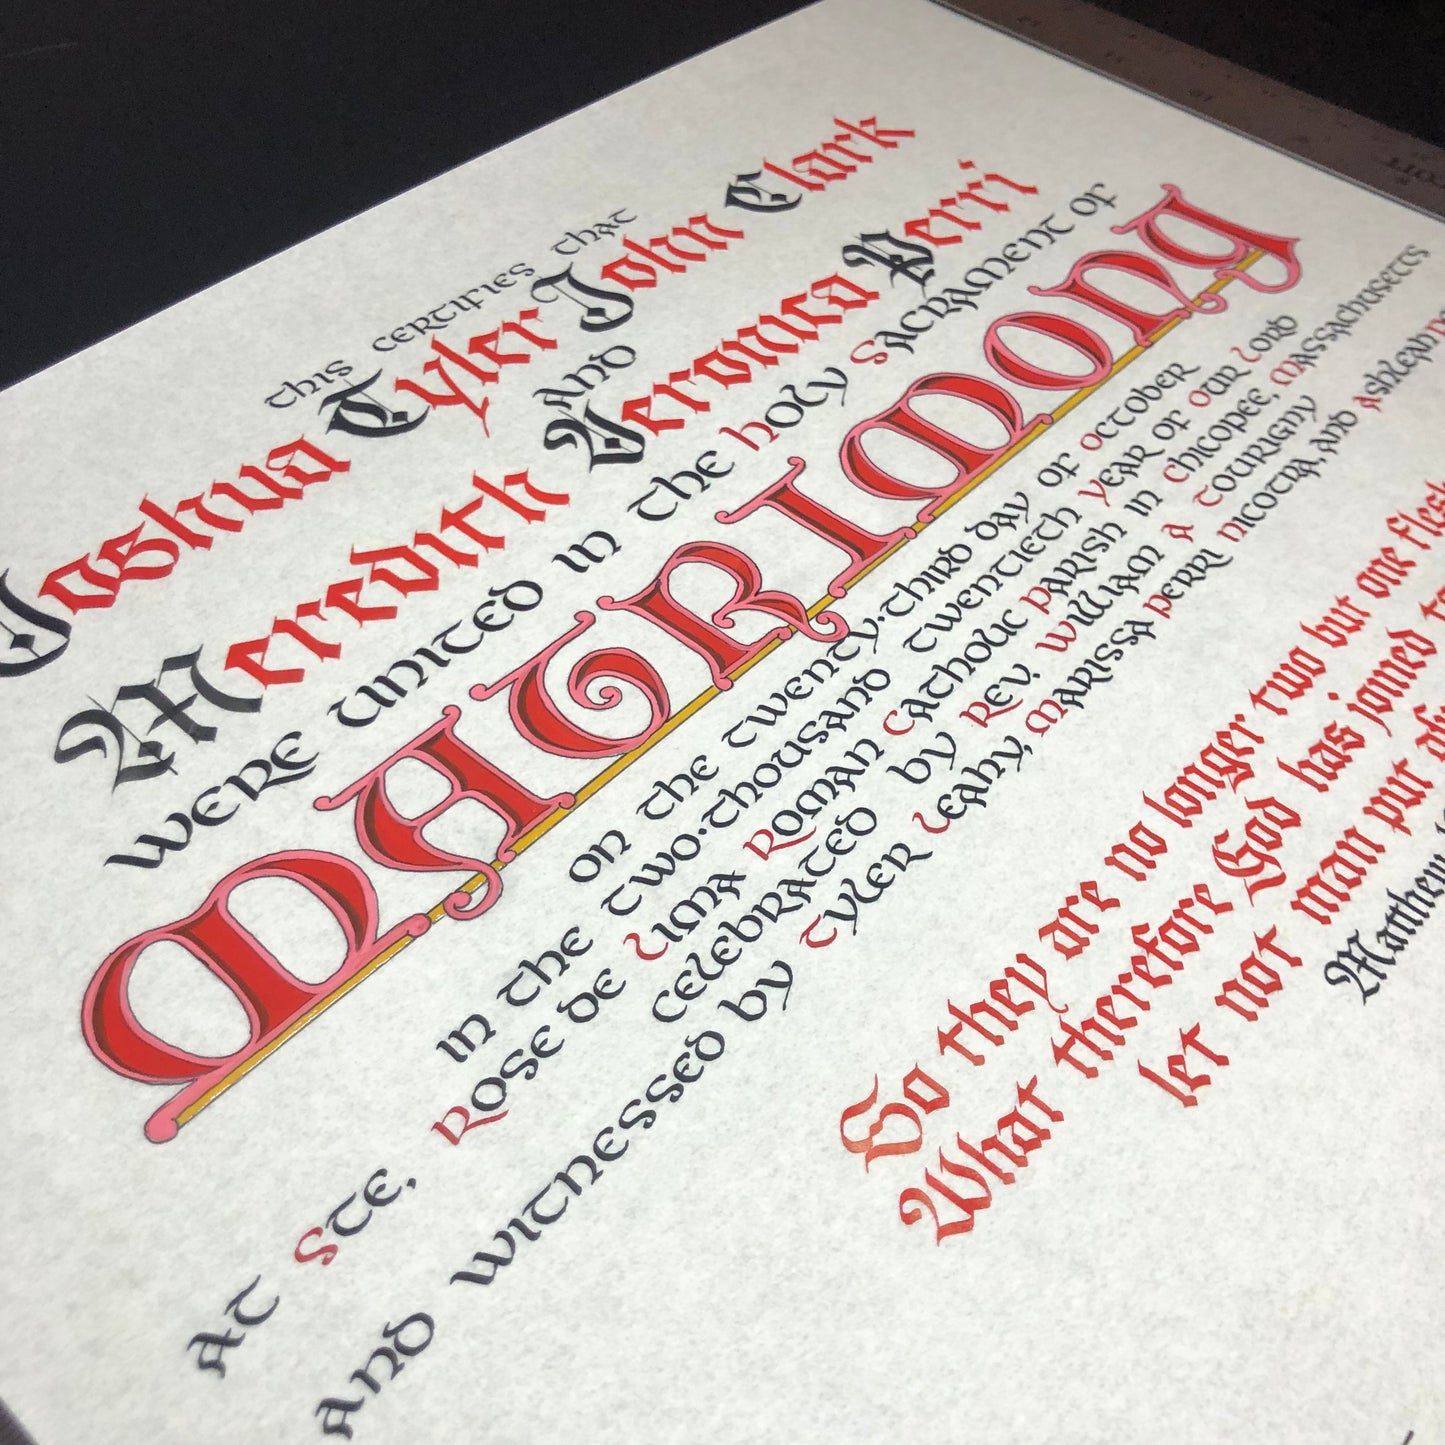 This certifies that
Joshua Tyler John Clark
and
Meredith Veronica Perri
were united in the Holy Sacrament of
MATRIMONY
on the twenty·third day of October
in the two·thousand twentieth year of Our Lord
at Ste. Rose de Lima Roman Catholic Parish in Chicopee, Massachusetts
celebrated by Rev. William A Tourigny
and witnessed by Tyler Leahy, Marissa Perri Nicotra, and
So they are no longer two but one flesh
What therefore God has joined
let not man put
Matthew